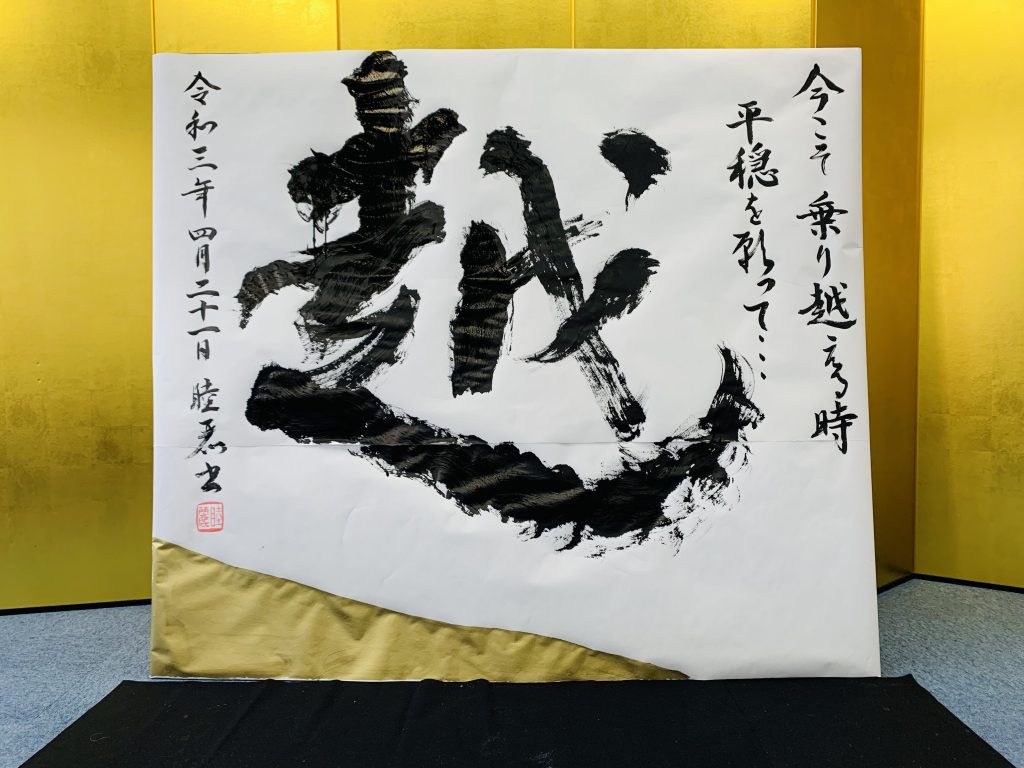 今こそ乗り越える時
平穏を願って…
越
令和三年四月二十一日 睦